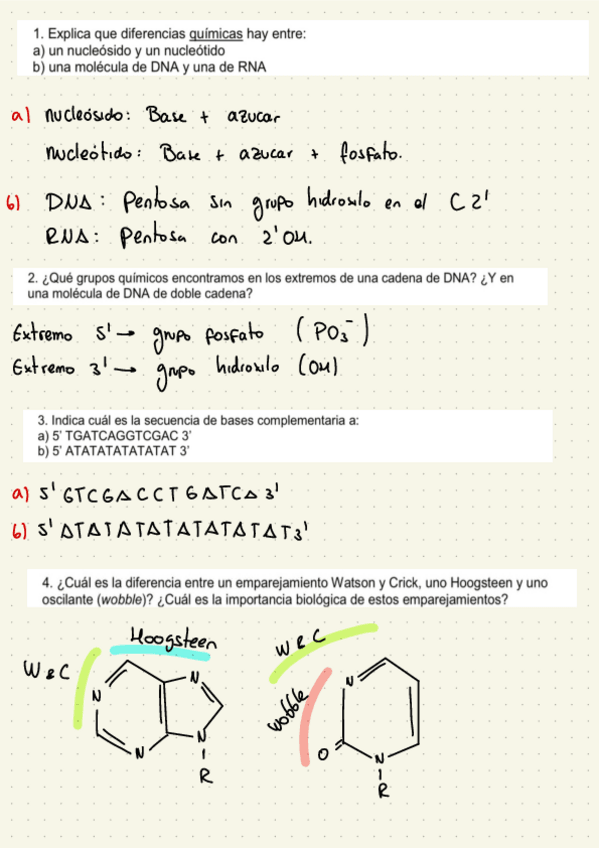 1. Explica que diferencias químicas hay entre:
a) un nucleósido y un nucleótido
b) una molécula de DNA y una de RNA
a) Nucleósido: Base + azucar
Nucleótido: Base + azucar + fosfato.
b) DNA: Pentosa sin grupo hidroxilo en el C2'
RNA: Pentosa con 2'OH.
2. ¿Qué grupos químicos encontramos en los extremos de una cadena de DNA? ¿Y en
una molécula de DNA de doble cadena?
Extremo 5' → grupo fosfato (PO3-)
Extremo 3' → grupo hidroxilo (OH)
3. Indica cuál es la secuencia de bases complementaria a:
a) 5' TGATCAGGTCGAC 3'
b) 5' ATATATATATATAT 3'
a) 5' GTCGACCTGATCA 3'
b) 5' ATATATATATATATAT 3'
4. ¿Cuál es la diferencia entre un emparejamiento Watson y Crick, uno Hoogsteen y uno
oscilante (wobble)? ¿Cuál es la importancia biológica de estos emparejamientos?
Hoogsteen
W & C
W & C
wobble
N
N
N
N
R
N
O
N
R